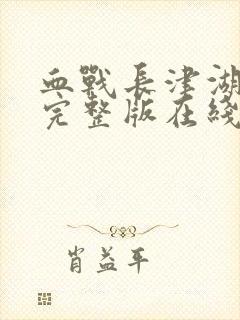 血戰長津湖
完整版在綫
肖益平